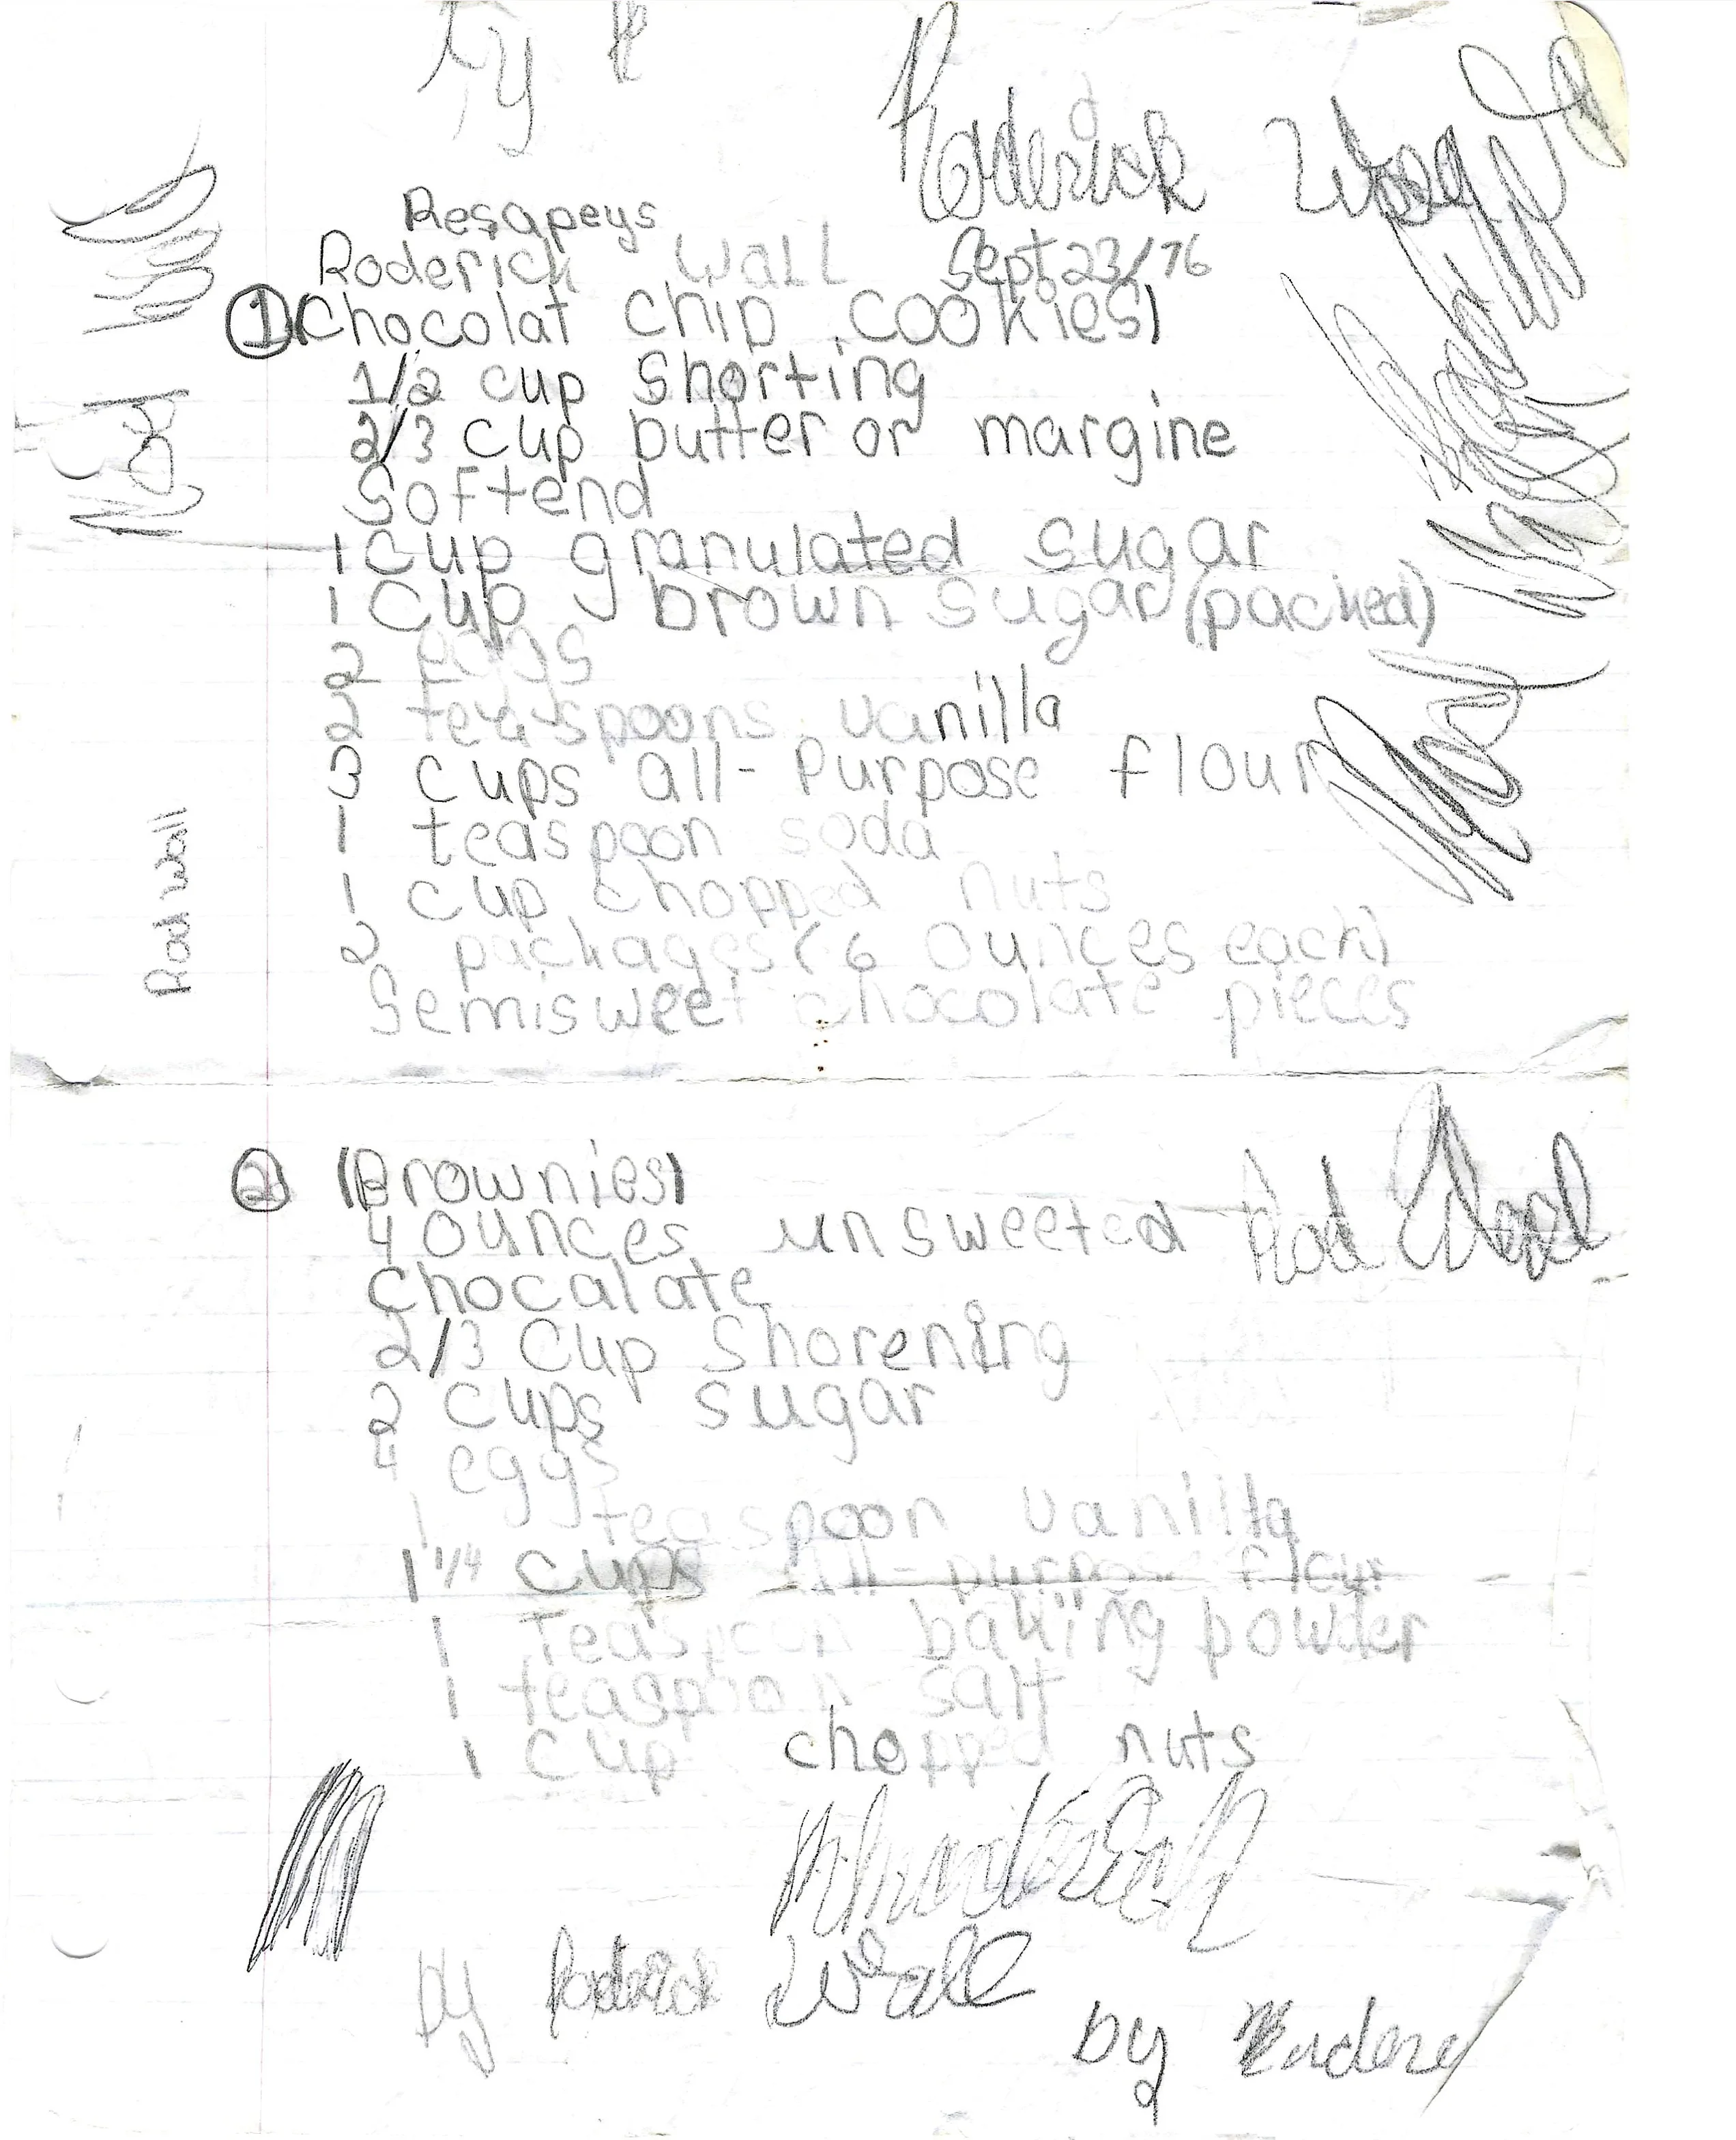 Roderick
Resapeys
Roderick Wall Sept 23/76
1 Chocolat chip cookies
1/2 cup Shorting
2/3 cup butter or margine
Softend
1 Cup granulated sugar
1 Cup brown sugar (packed)
2 eggs
2 teaspoons vanilla
3 cups all-Purpose flour
1 teaspoon soda
1 cup chopped nuts
2 packages (6 ounces each)
Semisweet chocolate pieces
Rod Wall
2 Brownies
4 ounces unsweeted
Chocalate
2/3 Cup Shorening
2 cups sugar
4 eggs
1 teaspoon vanilla
1 1/4 cups all-purpose flour
1 Teaspoon baking powder
1 teaspoon salt
1 cup chopped nuts
Rod
by Roderick Wall
by